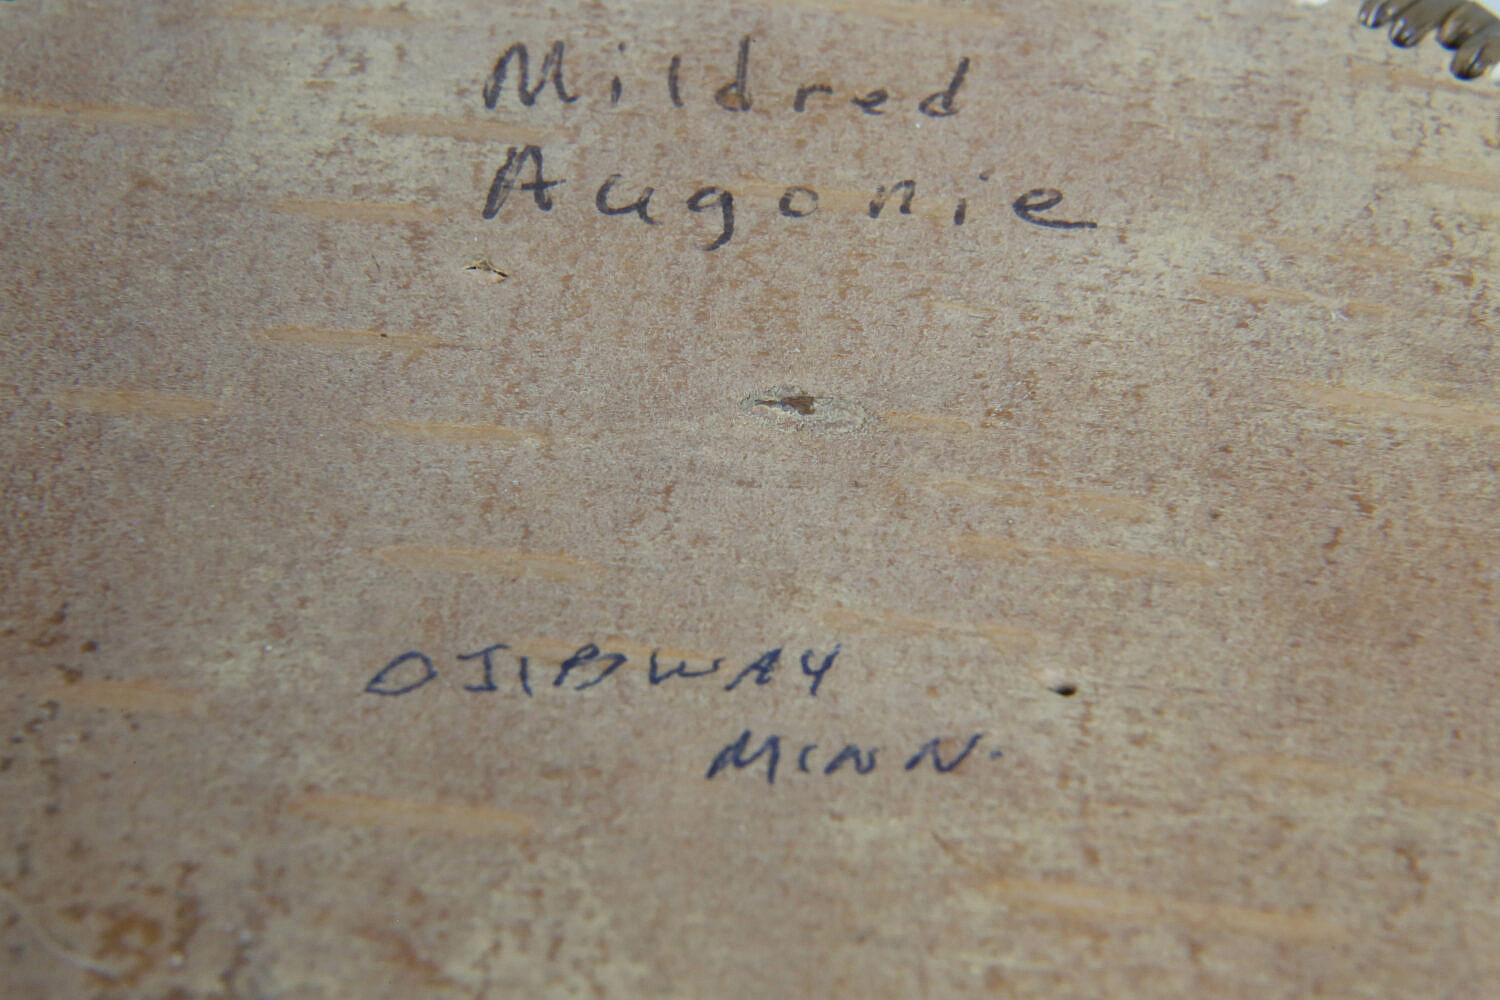 Mildred
Augonie
OJIBWAY
MINN.